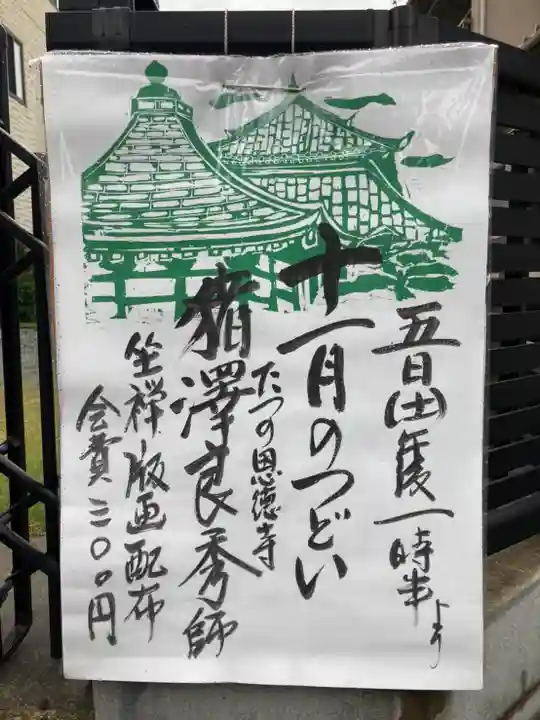 十一月のつどい
五日(土)午後一時半より
たつの恩徳寺
猪澤良秀師
坐禅 版画配布
会費三〇〇円